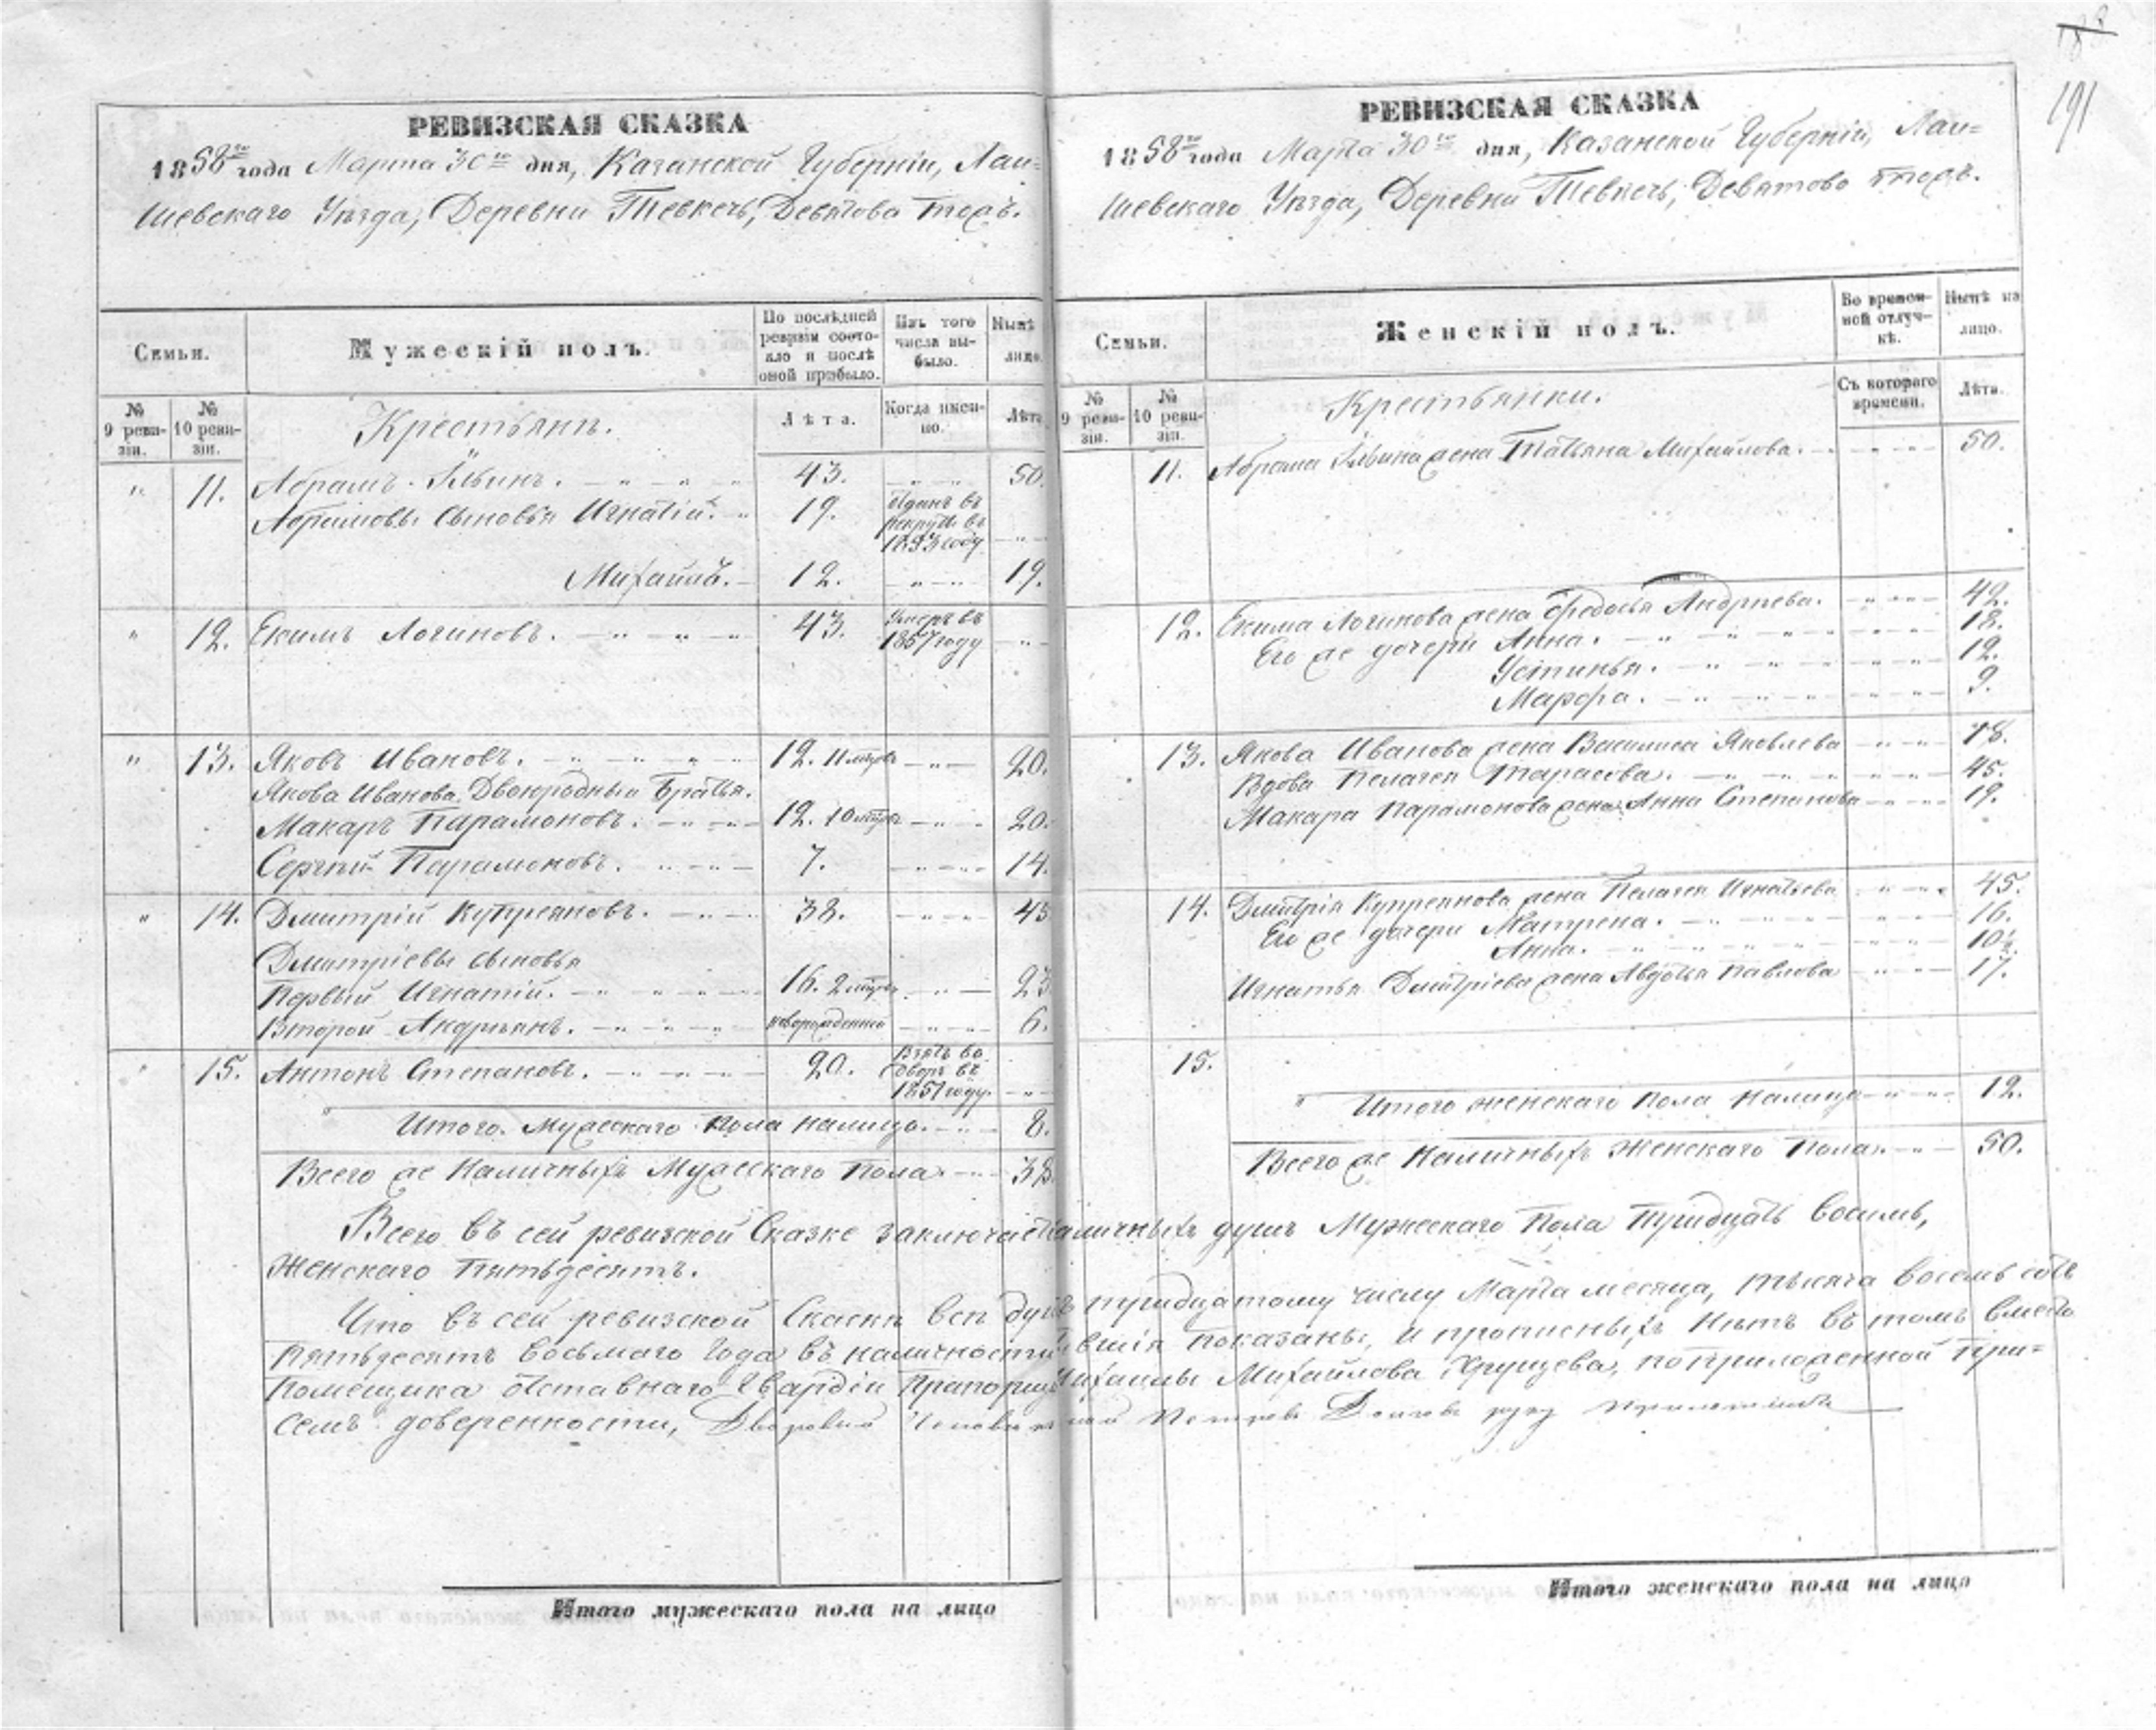 188
191
РЕВИЗСКАЯ СКАЗКА
1858го года Марта 30го дня, Казанской Губерніи, Лаи=
шевскаго Уѣзда, Деревни Тевкечь, Девятова тожъ.
Семьи.
Мужескій полъ.
По послѣдней ревизіи состояло и послѣ оной прибыло.
Изъ того числа выбыло.
Нынѣ на лицо.
№ 9 ревизіи.
№ 10 ревизіи.
Крестьянъ.
Лѣта.
Когда именно.
Лѣта
" 11. Абрамъ Ильинъ. 43. 50.
Абрамовы сыновья Игнатій. 19. Отданъ въ рекруты въ 1853 году
Михайлъ. 12. 19.
" 12. Екимъ Логиновъ. 43. Умеръ въ 1857 году
" 13. Яковъ Ивановъ. 12. 11 мѣсяц 20.
Якова Иванова Двоюродныи Братья.
Макаръ Парамоновъ. 12. 10 мѣсяц 20.
Сергѣй Парамоновъ. 7. 14.
" 14. Дмитрій Купреяновъ. 38. 45
Дмитріевы сыновья
Первый Игнатій. 16. 2 мѣсяц 23
Второй Андреянъ. новорожденный 6.
" 15. Антонъ Степановъ. 20. Взятъ во дворъ въ 1851 году.
Итого Мужескаго пола налицо. 8.
Всего же Наличныхъ Мужескаго пола 38
РЕВИЗСКАЯ СКАЗКА
1858го года Марта 30го дня, Казанской Губерніи, Лаи=
шевскаго Уѣзда, Деревни Тевкечь, Девятово тожъ.
Семьи.
Женскій полъ.
Во временной отлучкѣ.
Нынѣ на лицо.
№ 9 ревизіи.
№ 10 ревизіи.
Крестьянки.
Съ котораго времени.
Лѣта.
11. Абрама Ильина жена Татьяна Михайлова. 50.
12. Екима Логинова жена Федосья Андреева. 42.
Его же дочери Анна. 18.
Устинья. 12.
Марфа. 9.
13. Якова Иванова жена Василиса Яковлева 18.
Вдова Пелагея Тарасова. 45.
Макара Парамонова жена Анна Степанова 19.
14. Дмитрія Купреянова жена Пелагея Игнатьева 45.
Его же дочери Матрена. 16.
Анна. 10½
Игнатья Дмитріева жена Авдотья Павлова 17.
15.
Итого женскаго пола налицо 12.
Всего же Наличныхъ Женскаго пола. 50.
Всего въ сей ревизской Сказке заключает аличныхъ душъ Мужескаго пола тридцать восемь,
Женскаго пятьдесятъ.
Что въ сей ревизской Сказкѣ всѣ душ тридцатому числу Марта месяца, тысяча восемь сотъ
пятьдесятъ восьмаго Года въ наличности вшія показаны, и прописныхъ нѣтъ въ томъ вместо
помещика отставнаго Гвардіи Прапорщ ихаилы Михайлова Хрущева, по приложенной при=
семъ доверенности, Дворовый Петровъ руку приложилъ
Итого мужескаго пола на лицо
Итого женскаго пола на лицо